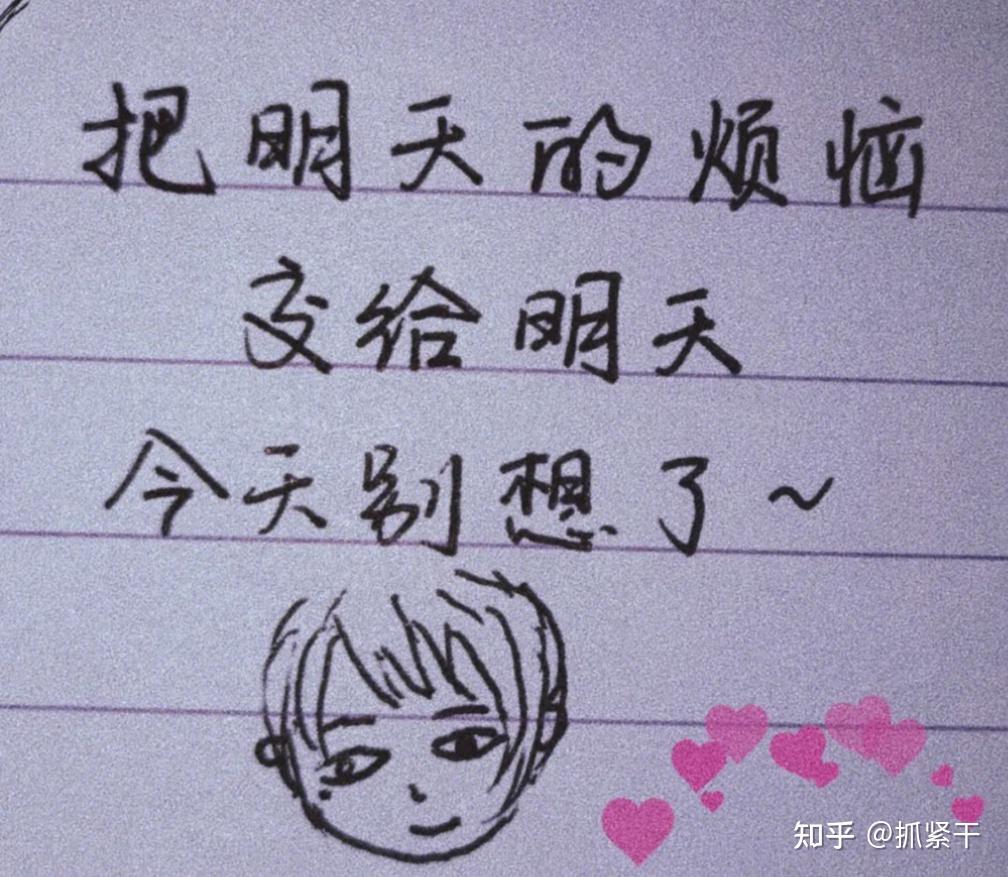 把明天的烦恼
交给明天
今天别想了~
知乎 @抓紧干